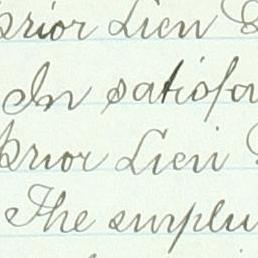 prior Lien
In satisfa
prior Lien
The surplu